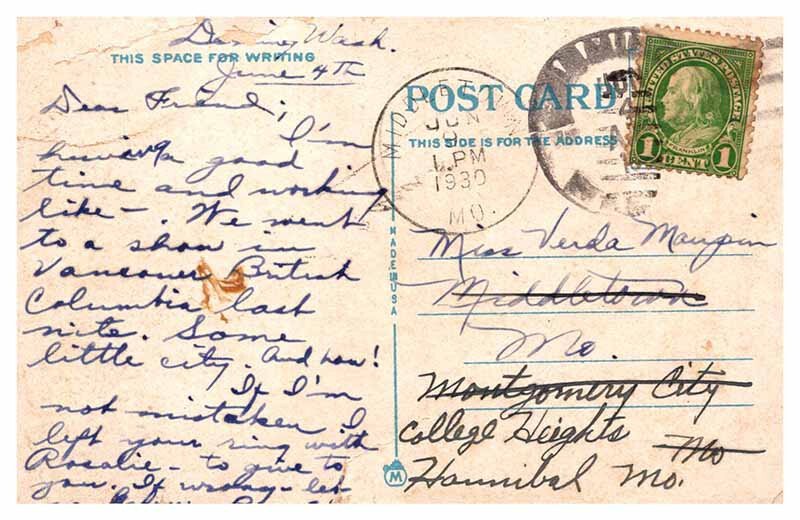 Deming Wash.
THIS SPACE FOR WRITING
June 4th
Dear Friend;
I'm
having a good
time and working
like -. We went
to a show in
Vancouver British
Columbia last
nite. Some
little city. And how!
If I'm
not mistaken I
left your ring with
Rosalie - to give to
you. If wrong - let
MADE IN USA
M
POST CARD
THIS SIDE IS FOR THE ADDRESS
JUN
1 PM
1930
MO.
UNITED STATES POSTAGE
FRANKLIN
1 CENT 1
Miss Verda Maupin
Middletown
Mo.
Montgomery City
College Heights
Mo
Hannibal Mo.